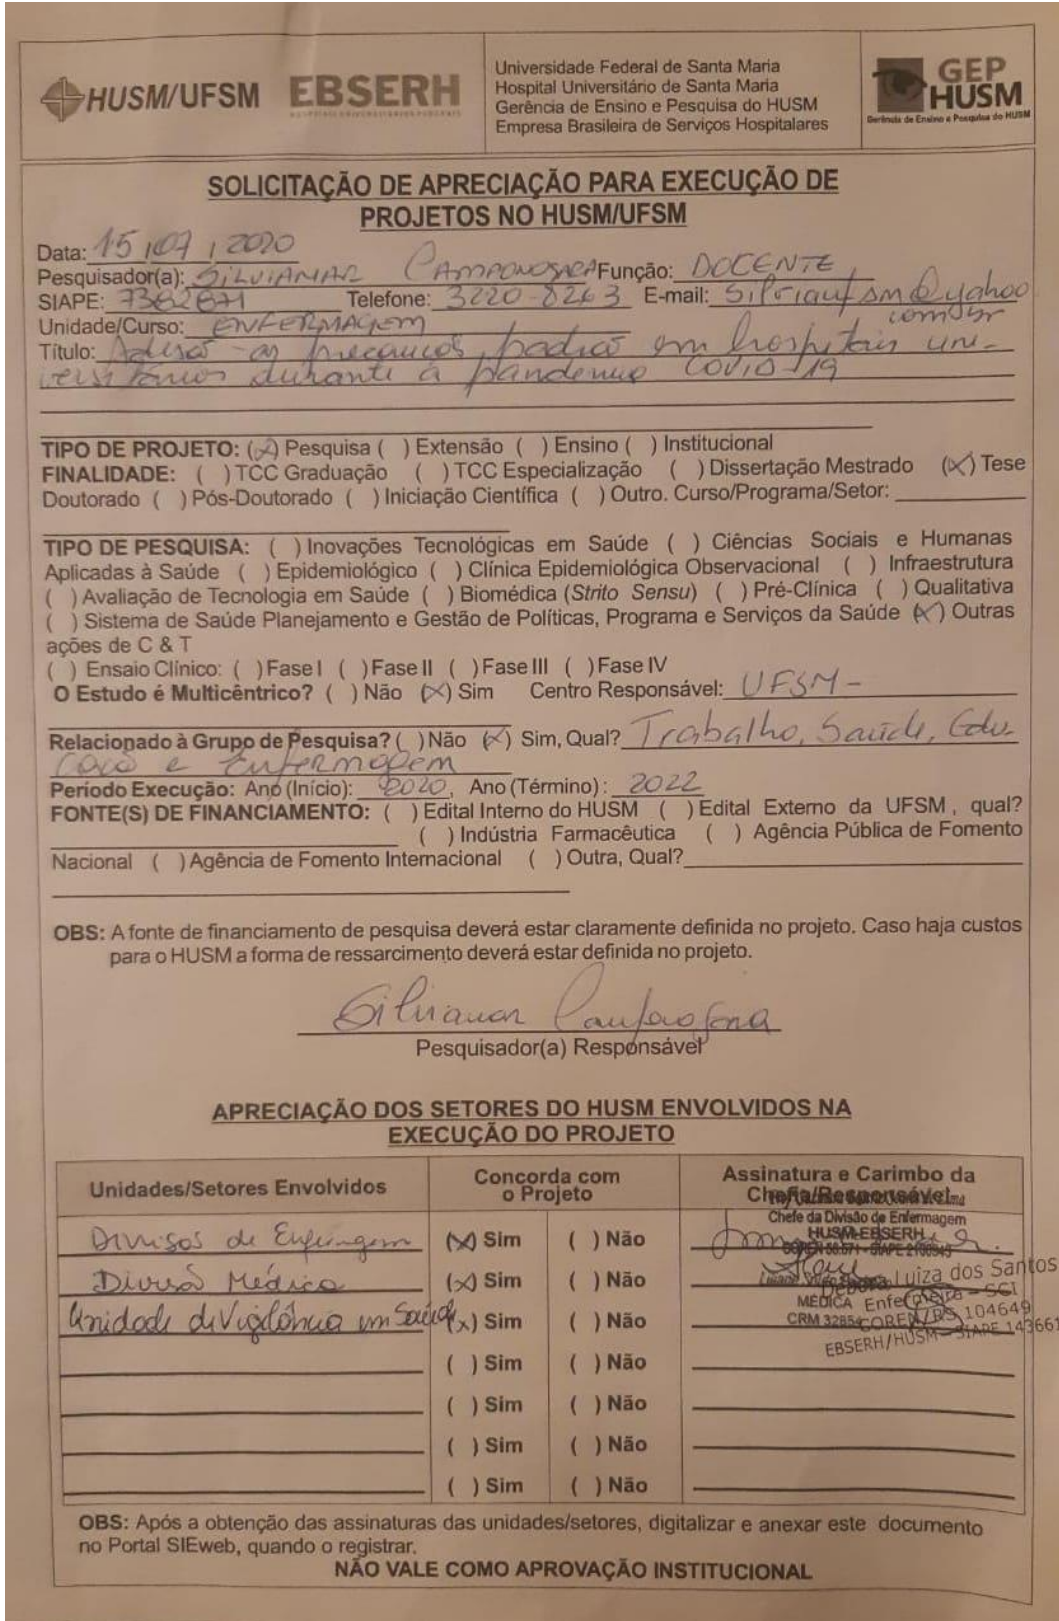 HUSM/UFSM
EBSERH
HOSPITAIS UNIVERSITÁRIOS FEDERAIS
Universidade Federal de Santa Maria
Hospital Universitário de Santa Maria
Gerência de Ensino e Pesquisa do HUSM
Empresa Brasileira de Serviços Hospitalares
GEP
HUSM
Gerência de Ensino e Pesquisa do HUSM
SOLICITAÇÃO DE APRECIAÇÃO PARA EXECUÇÃO DE
PROJETOS NO HUSM/UFSM
Data: 15/07/2020
Pesquisador(a): SILVIAMAR CAMPONOGARA Função: DOCENTE
SIAPE: Telefone: 3220-8263 E-mail: silviaufsm@yahoo
com.br
Unidade/Curso: ENFERMAGEM
Título: Adesão as precauções padrão em hospitais uni-
versitários durante a pandemia COVID-19
TIPO DE PROJETO: (X) Pesquisa ( ) Extensão ( ) Ensino ( ) Institucional
FINALIDADE: ( ) TCC Graduação ( ) TCC Especialização ( ) Dissertação Mestrado (X) Tese
Doutorado ( ) Pós-Doutorado ( ) Iniciação Científica ( ) Outro. Curso/Programa/Setor:
TIPO DE PESQUISA: ( ) Inovações Tecnológicas em Saúde ( ) Ciências Sociais e Humanas
Aplicadas à Saúde ( ) Epidemiológico ( ) Clínica Epidemiológica Observacional ( ) Infraestrutura
( ) Avaliação de Tecnologia em Saúde ( ) Biomédica (Strito Sensu) ( ) Pré-Clínica ( ) Qualitativa
( ) Sistema de Saúde Planejamento e Gestão de Políticas, Programa e Serviços da Saúde (X) Outras
ações de C & T
( ) Ensaio Clínico: ( ) Fase I ( ) Fase II ( ) Fase III ( ) Fase IV
O Estudo é Multicêntrico? ( ) Não (X) Sim Centro Responsável: UFSM -
Relacionado à Grupo de Pesquisa? ( ) Não (X) Sim, Qual? Trabalho, Saúde, Edu-
cação e Enfermagem
Período Execução: Ano (Início): 2020, Ano (Término): 2022
FONTE(S) DE FINANCIAMENTO: ( ) Edital Interno do HUSM ( ) Edital Externo da UFSM, qual?
( ) Indústria Farmacêutica ( ) Agência Pública de Fomento
Nacional ( ) Agência de Fomento Internacional ( ) Outra, Qual?
OBS: A fonte de financiamento de pesquisa deverá estar claramente definida no projeto. Caso haja custos
para o HUSM a forma de ressarcimento deverá estar definida no projeto.
Silviamar Camponogara
Pesquisador(a) Responsável
APRECIAÇÃO DOS SETORES DO HUSM ENVOLVIDOS NA
EXECUÇÃO DO PROJETO
Unidades/Setores Envolvidos
Concorda com
o Projeto
Assinatura e Carimbo da
Chefia/Responsável
Chefe da Divisão de Enfermagem
HUSM-EBSERH
Divisão de Enfermagem (X) Sim ( ) Não
Divisão Médica (X) Sim ( ) Não
Luiza dos Santos
MÉDICA Enfermeira - SCI
Unidade de Vigilância em Saúde (x) Sim ( ) Não
CRM 32854 COREN/RS 104649
EBSERH/HUSM - SIAPE 143661
( ) Sim ( ) Não
( ) Sim ( ) Não
( ) Sim ( ) Não
( ) Sim ( ) Não
OBS: Após a obtenção das assinaturas das unidades/setores, digitalizar e anexar este documento
no Portal SIEweb, quando o registrar.
NÃO VALE COMO APROVAÇÃO INSTITUCIONAL